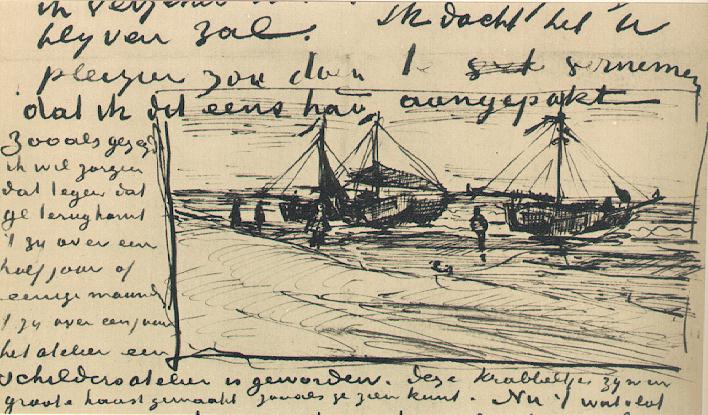 ik
blyven zal. Ik dacht het U
pleizier zou doen te vernemen
dat ik dit eens had aangepakt
zooals gezegd
ik wil zorgen
dat tegen dat
ge terugkomt
't zy over een
half jaar of
eenige maand
't zy over een jaar
het atelier een
schildersatelier is geworden. Deze krabbeltjes zyn in
groote haast gemaakt zooals ge zien kunt. Nu 't wat vlot